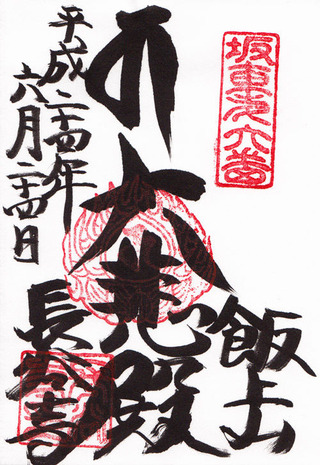 坂東第六番
飯上山
大悲殿
平成二十四年
六月二十四日
長谷寺